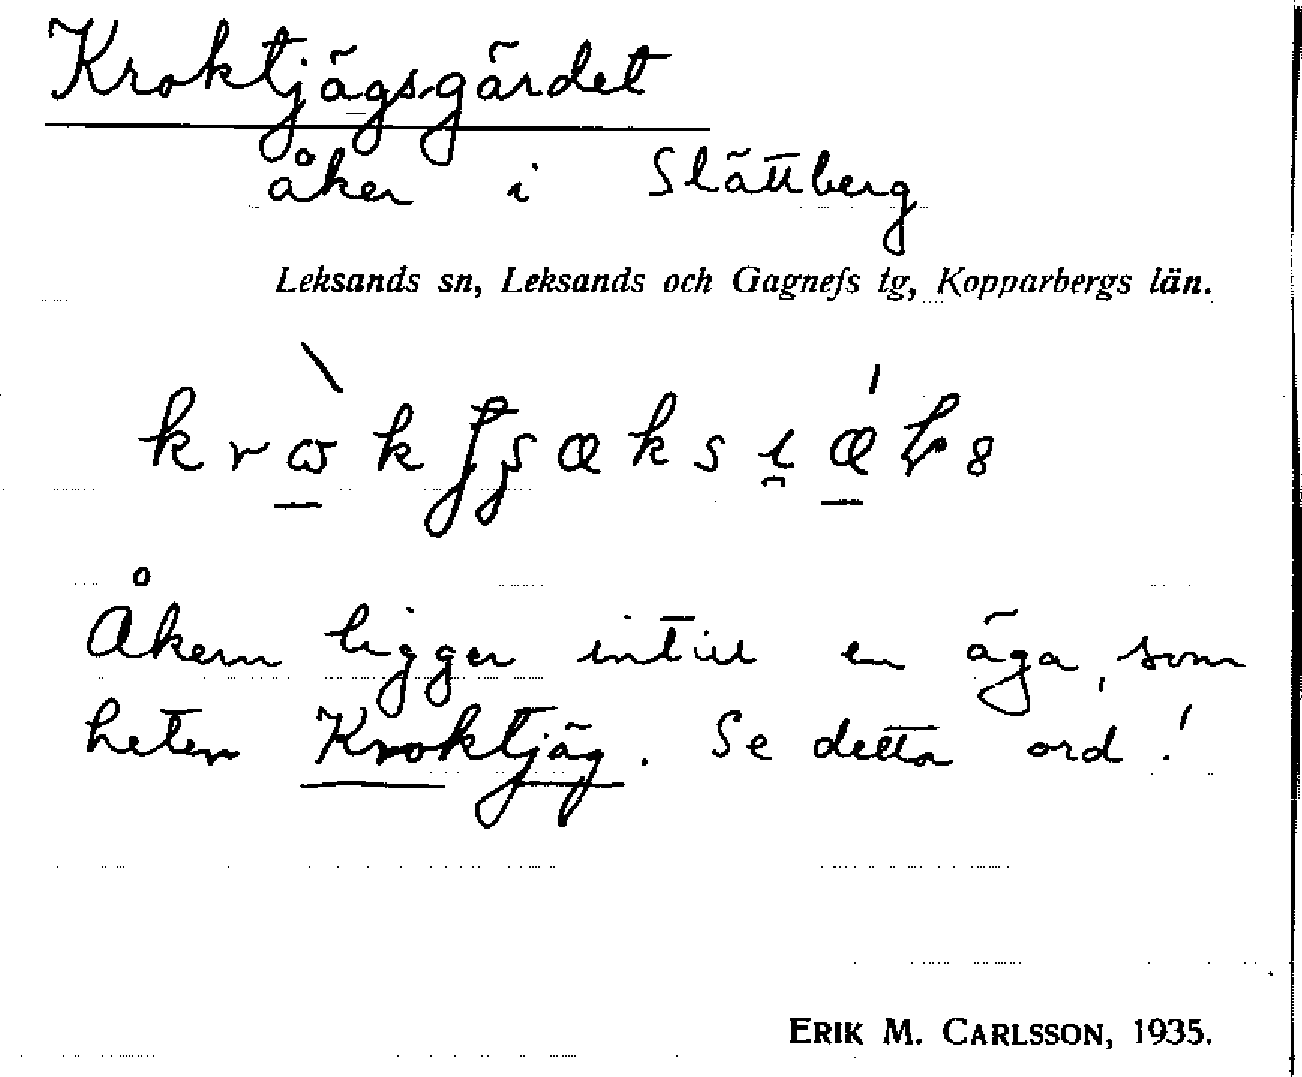 Kroktjägsgärdet
åker i Slättberg
Leksands sn, Leksands och Gagnefs tg, Kopparbergs län.
Åkern ligger intill en äga, som
heter Kroktjäg. Se detta ord!
ERIK M. CARLSSON, 1935.